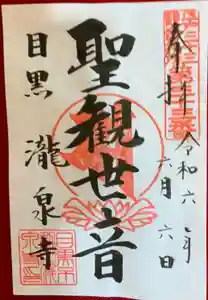 奉拝
令和六年
六月六日
聖観世音
目黒
瀧泉寺